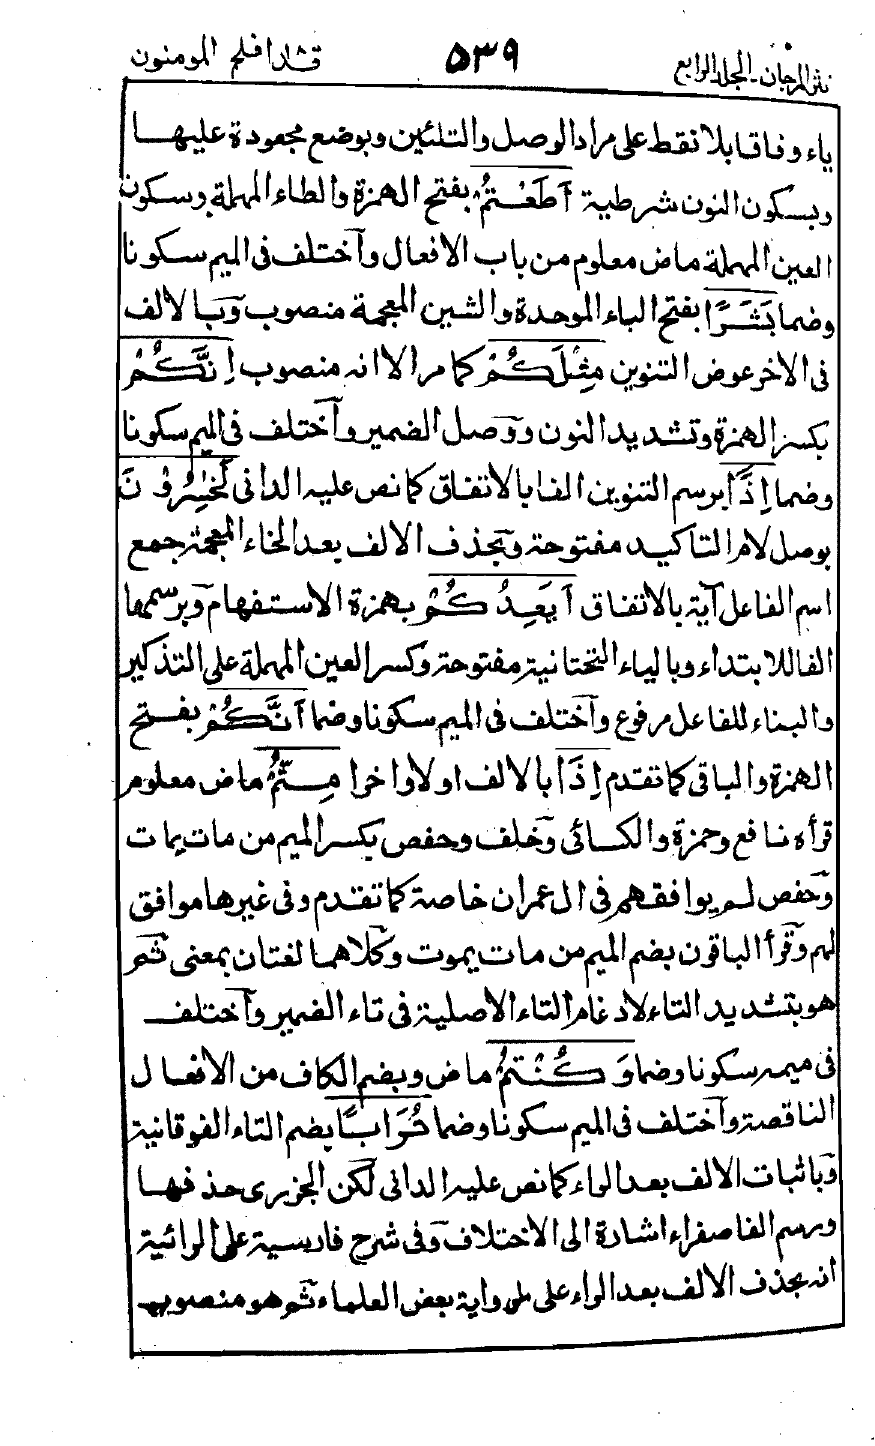 نثر المرجان - المجلد الرابع ٥٣٩ قد افلح المومنون
ياء وفاقا بلا نقط على مراد الوصل والتلئين وبوضع مجعودة عليها
وبسكون النون شرطية أَطَعْتُمْ بفتح الهمزة والطاء المهملة وسكون
العين المهملة ماض معلوم من باب الافعال وآختلف فى الميم سكونا
وضما بَشَرًا بفتح الباء الموحدة والشين المعجمة منصوب وبالالف
فى الاخر عوض التنوين مِثْلَكُمْ كما مر الا انه منصوب إِنَّكُمْ
بكسر الهمزة وتشديد النون ووصل الضمير وآختلف فى الميم سكونا
وضما إِذًا برسم التنوين الفا بالاتفاق كما نص عليه الدانى لَخٰسِرُوْنَ
بوصل لام التاكيد مفتوحة وبحذف الالف بعد الخاء المعجمة جمع
اسم الفاعل آية بالاتفاق أَيَعِدُكُمْ بهمزة الاستفهام وبرسمها
الفا للابتداء وبالياء التحتانية مفتوحة وكسر العين المهملة على التذكير
والبناء للفاعل مرفوع وآختلف فى الميم سكونا وضما أَنَّكُمْ بفتح
الهمزة والباقى كما تقدم إِذَا بالالف اولا واخرا مِتُّمْ ماض معلوم
قرأه نافع وحمزة والكسائى وخلف وحفص بكسر الميم من مات يمات
وحفص لم يوافقهم فى ال عمران خاصة كما تقدم وفى غيرها موافق
لهم وقرأ الباقون بضم الميم من مات يموت وكلاهما لغتان بمعنى ثم
هو بتشديد التاء لادغام التاء الاصلية فى تاء الضمير وآختلف
فى ميمه سكونا وضما وَكُنْتُمْ ماض وبضم الكاف من الافعال
الناقصة وآختلف فى الميم سكونا وضما تُرَابًا بضم التاء الفوقانية
وباثبات الالف بعد الراء كما نص عليه الدانى لكن الجزرى حذفها
ورسم الفا صفراء اشارة الى الاختلاف وفى شرح فارسية على الرائية
انه بحذف الالف بعد الراء على رواية بعض العلماء ثم هو منصوب